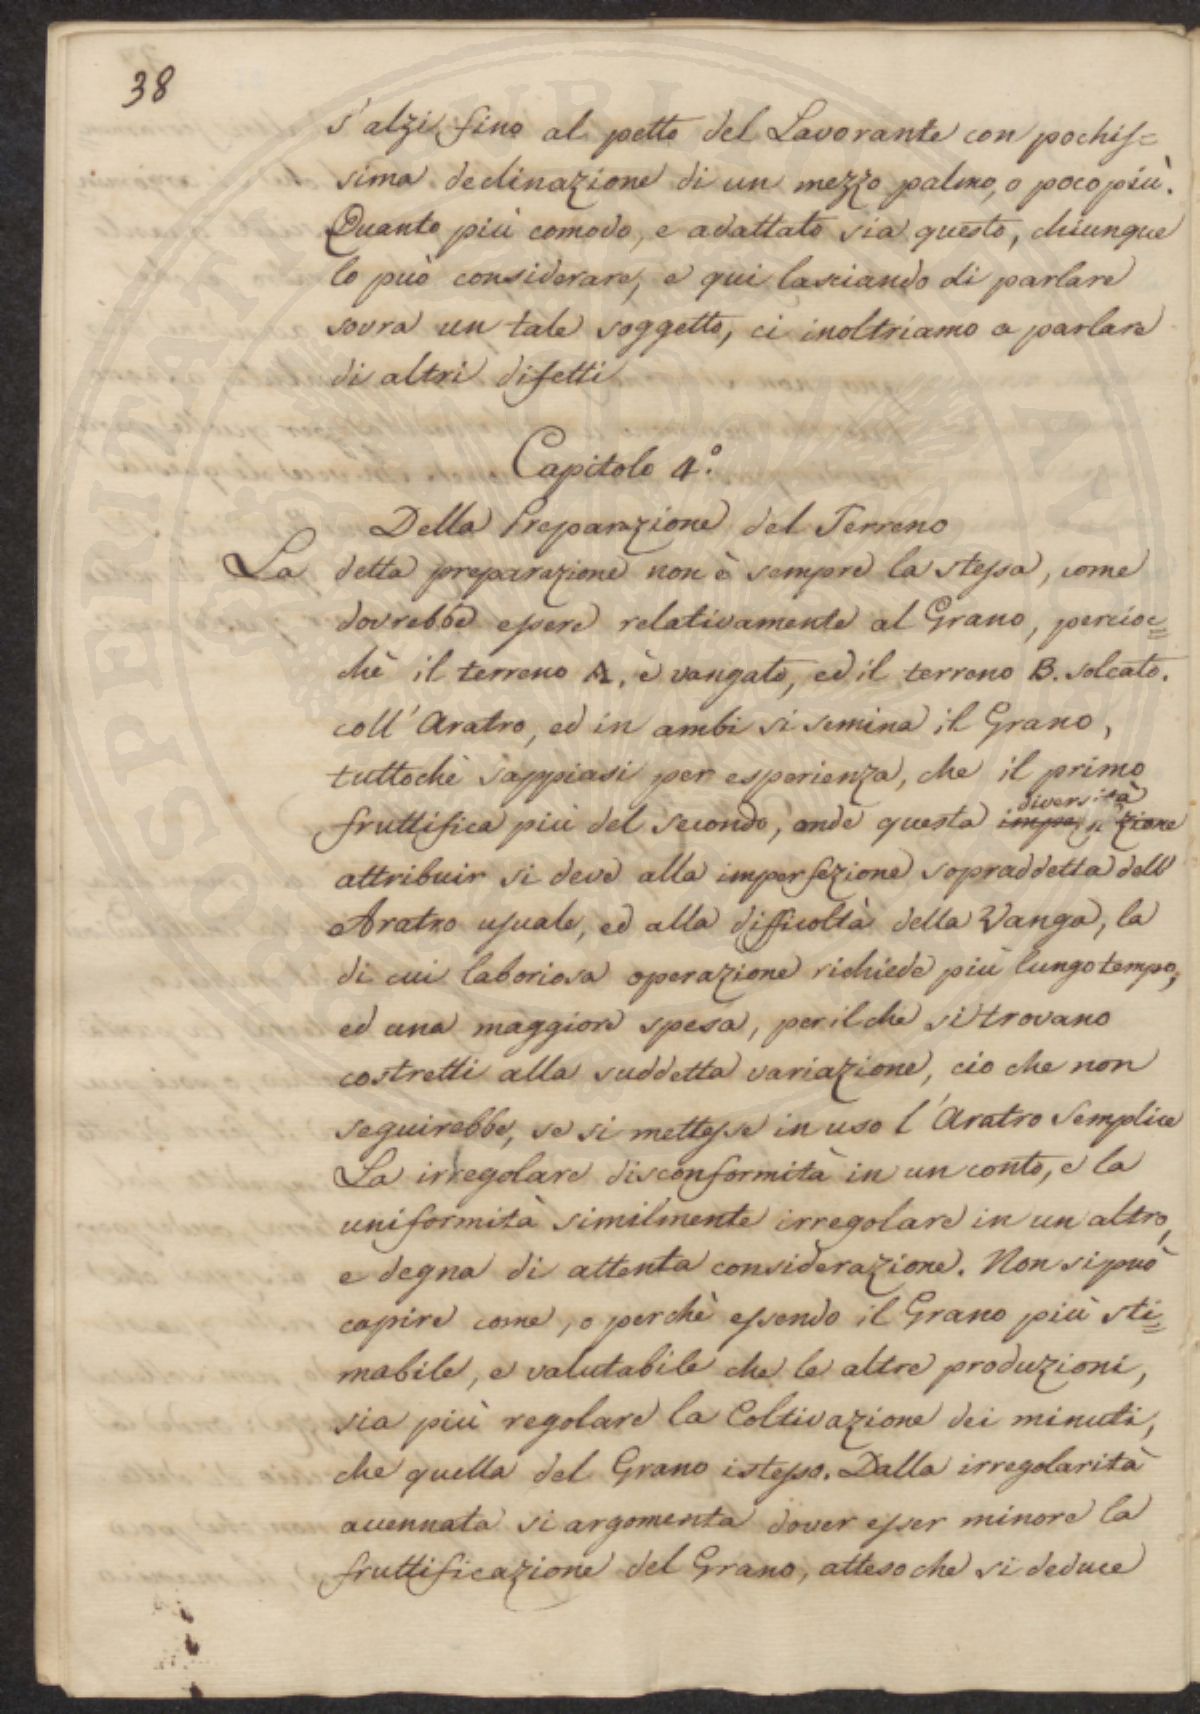 38
s'alzi fino al petto del Lavorante con pochis=
sima declinazione di un mezzo palmo, o poco più.
Quanto più comodo, e adattato sia questo, chiunque
lo può considerare, e qui lasciando di parlare
sovra un tale soggetto, ci inoltriamo a parlare
di altri difetti
Capitolo 4.o
Della Preparazione del Terreno
La detta preparazione non è sempre la stessa, come
dovrebbe essere relativamente al Grano, percioc=
chè il terreno A. è vangato, ed il terreno B. solcato.
coll'Aratro, ed in ambi si semina il Grano,
tuttochè sappiasi per esperienza, che il primo
diversità
fruttifica più del secondo, onde questa
attribuir si deve alla imperfezione sopraddetta dell'
Aratro usuale, ed alla difficoltà della Vanga, la
di cui laboriosa operazione richiede più lungo tempo,
ed una maggiore spesa, per il che si trovano
costretti alla suddetta variazione, cio che non
seguirebbe, se si mettesse in uso l'Aratro Semplice
La irregolare disconformità in un conto, e la
uniformità similmente irregolare in un altro,
e degna di attenta considerazione. Non si può
capire come, o perchè essendo il Grano più sti=
mabile, e valutabile che le altre produzioni,
sia più regolare la Coltivazione dei minuti,
che quella del Grano istesso. Dalla irregolarità
accennata si argomenta dover esser minore la
fruttificazione del Grano, atteso che si deduce